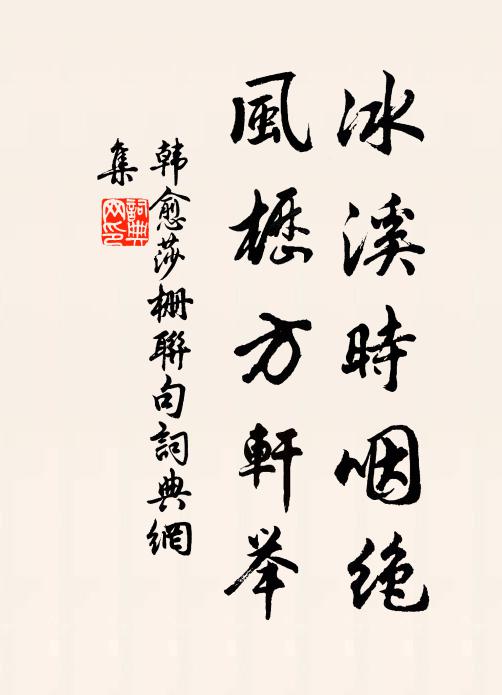 冰溪時咽絶
風櫪方軒举
韩愈莎栅聯句詞典網
集
詞典网印